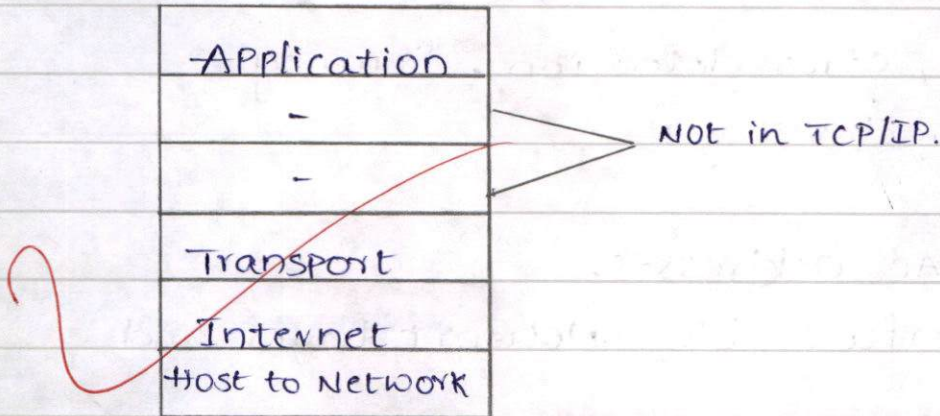 Application
-
NOT in TCP/IP.
-
Transport
Internet
Host to Network